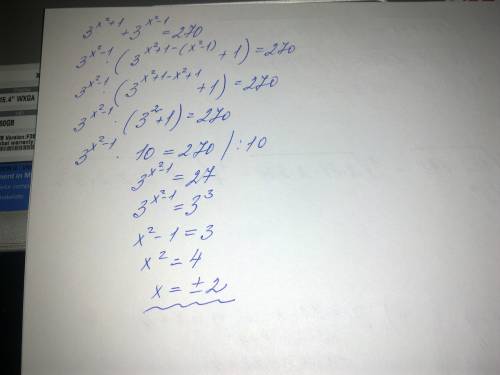 3^{x²+1} + 3^{x²-1} = 270
3^{x²-1} · (3^{x²+1-(x²-1)} + 1) = 270
3^{x²-1} · (3^{x²+1-x²+1} + 1) = 270
3^{x²-1} · (3² + 1) = 270
3^{x²-1} · 10 = 270 / : 10
3^{x²-1} = 27
3^{x²-1} = 3³
x² - 1 = 3
x² = 4
x = ± 2